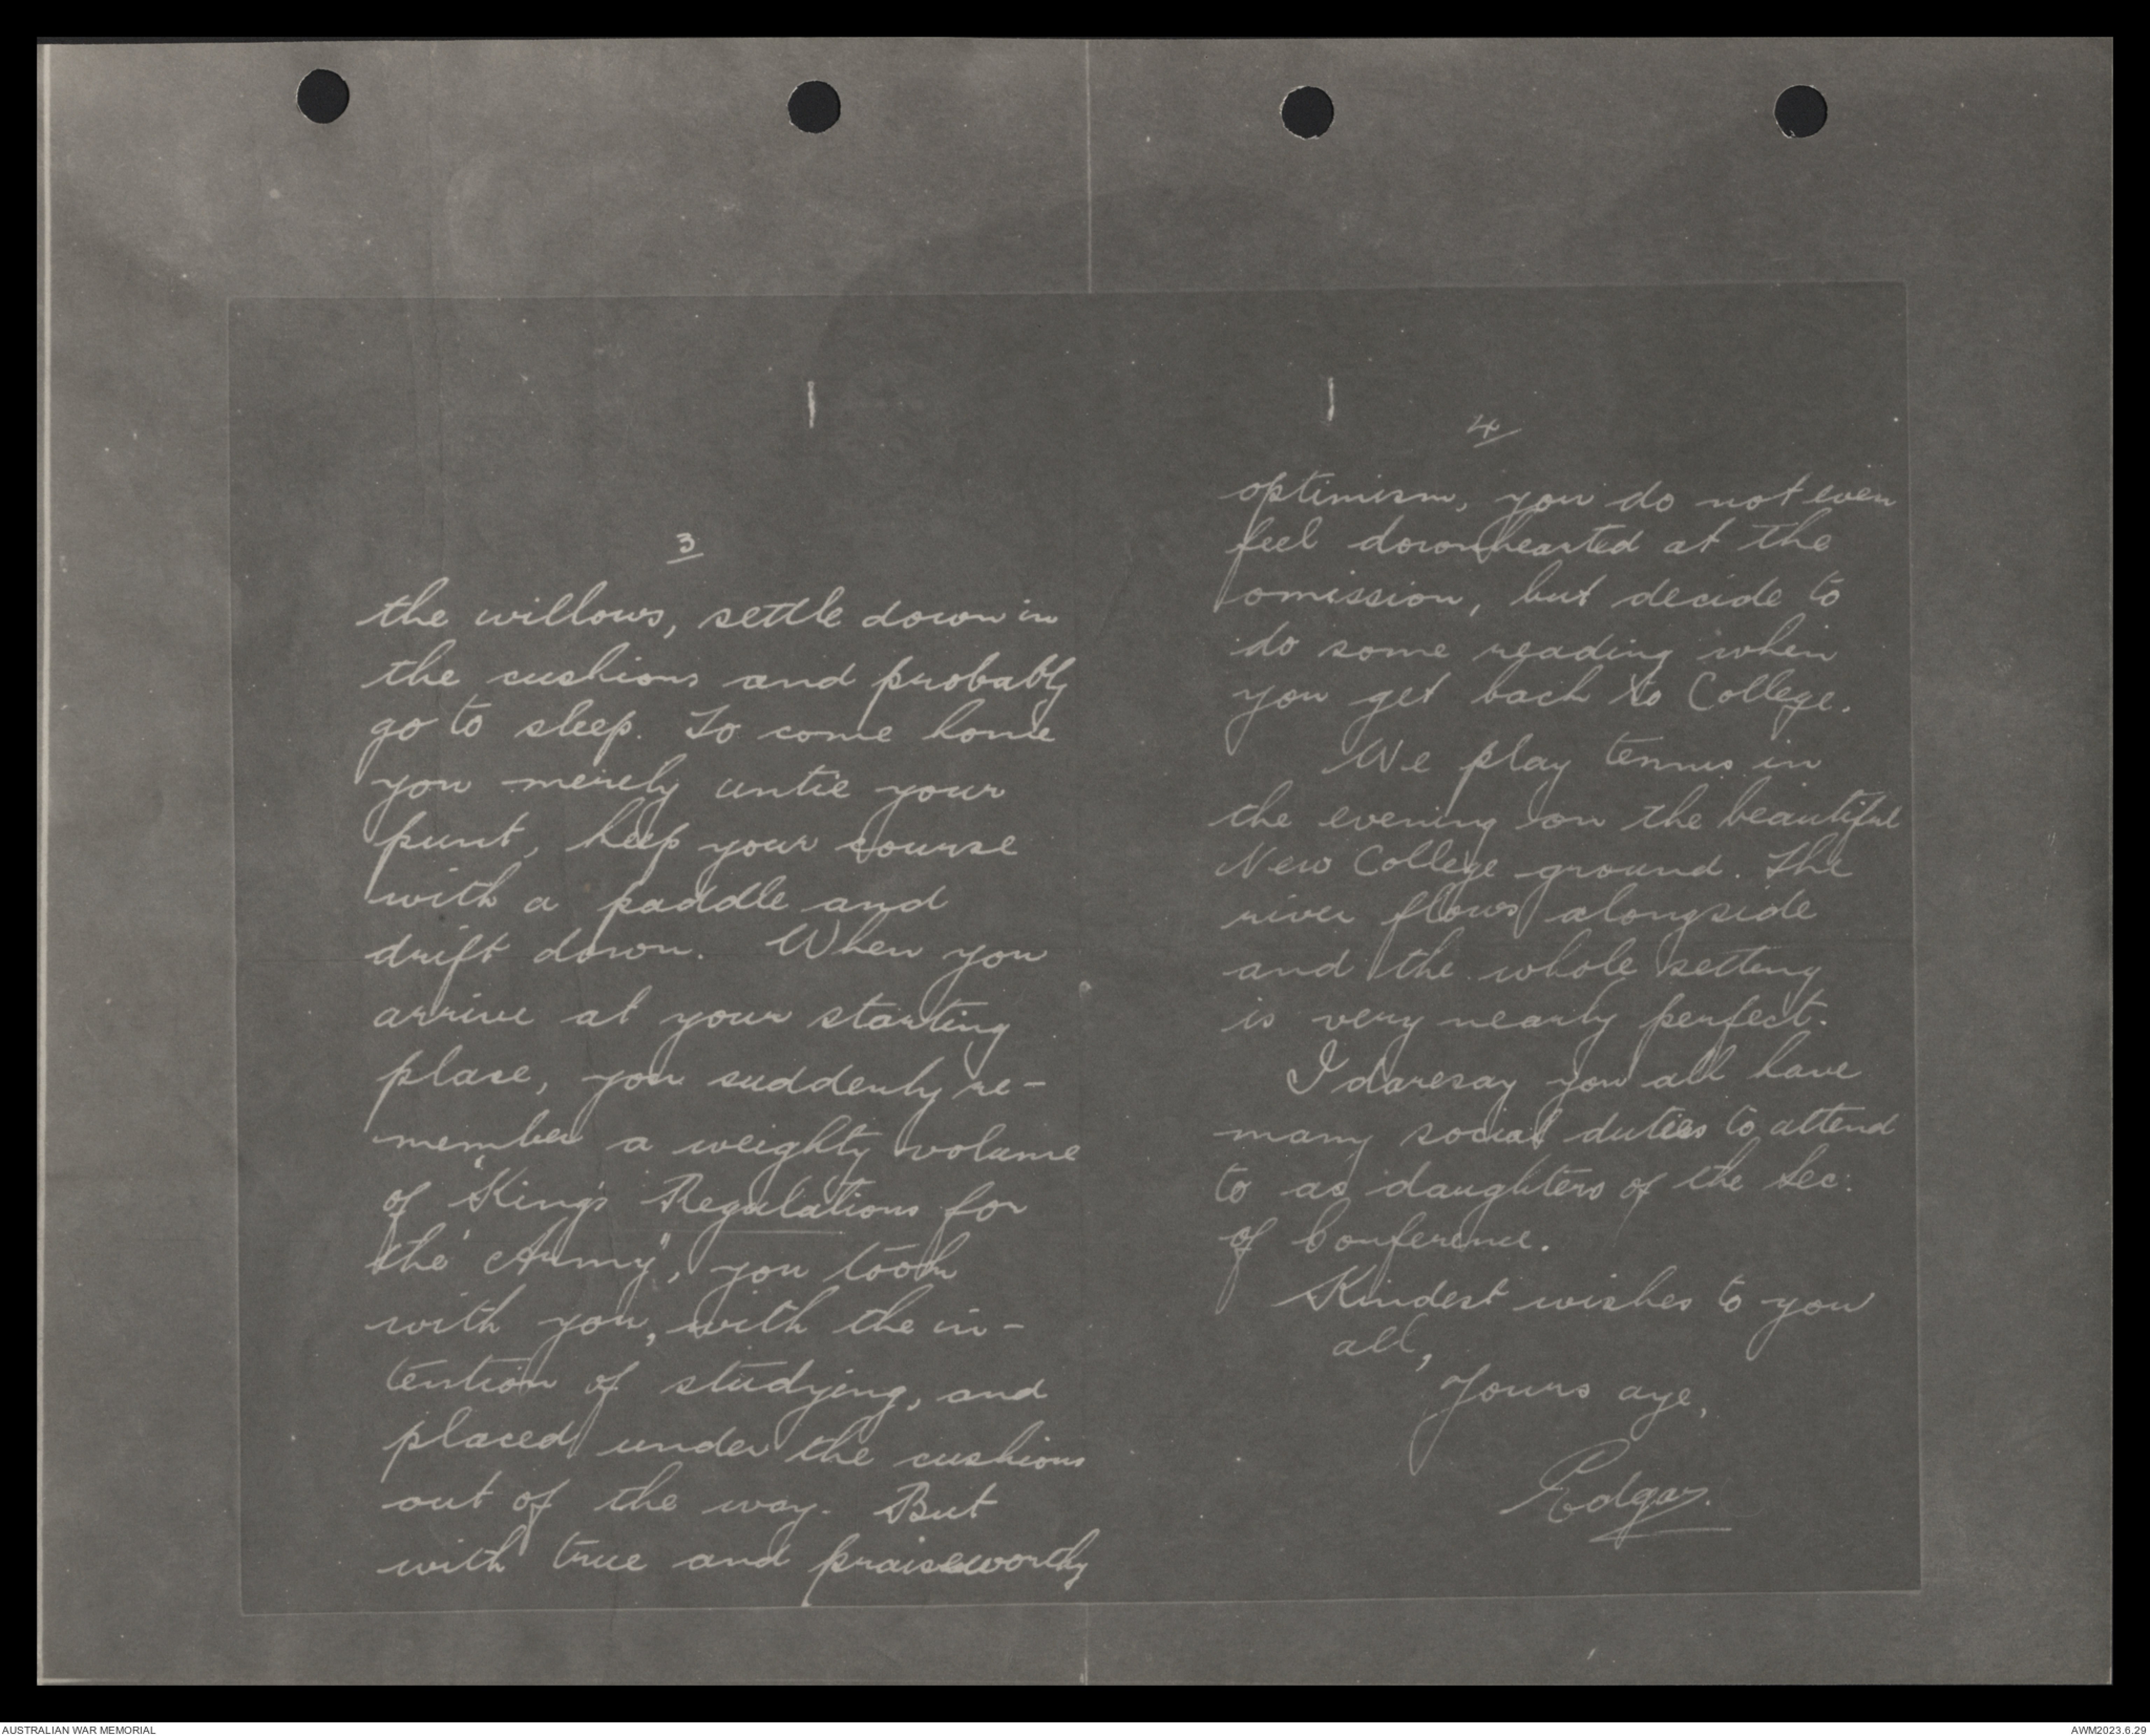 3
the willows, settle down in
the cushions and probably
go to sleep. To come home
you merely untie your
punt, keep your course
with a paddle and
drift down. When you
arrive at your starting
place, you suddenly re-
member a weighty volume
of "King's Regulations for
the Army", you took
with you, with the in-
tention of studying, and
placed under the cushions
out of the way. But
with true and praiseworthy
4
optimism, you do not even
feel downhearted at the
omission, but decide to
do some reading when
you get back to College.
We play tennis in
the evening on the beautiful
New College ground. The
river flows alongside
and the whole setting
is very nearly perfect.
I daresay you all have
many social duties to attend
to as daughters of the Sec:
of Conference.
Kindest wishes to you
all,
Yours aye,
Edgar.
AUSTRALIAN WAR MEMORIAL
AWM2023.6.29